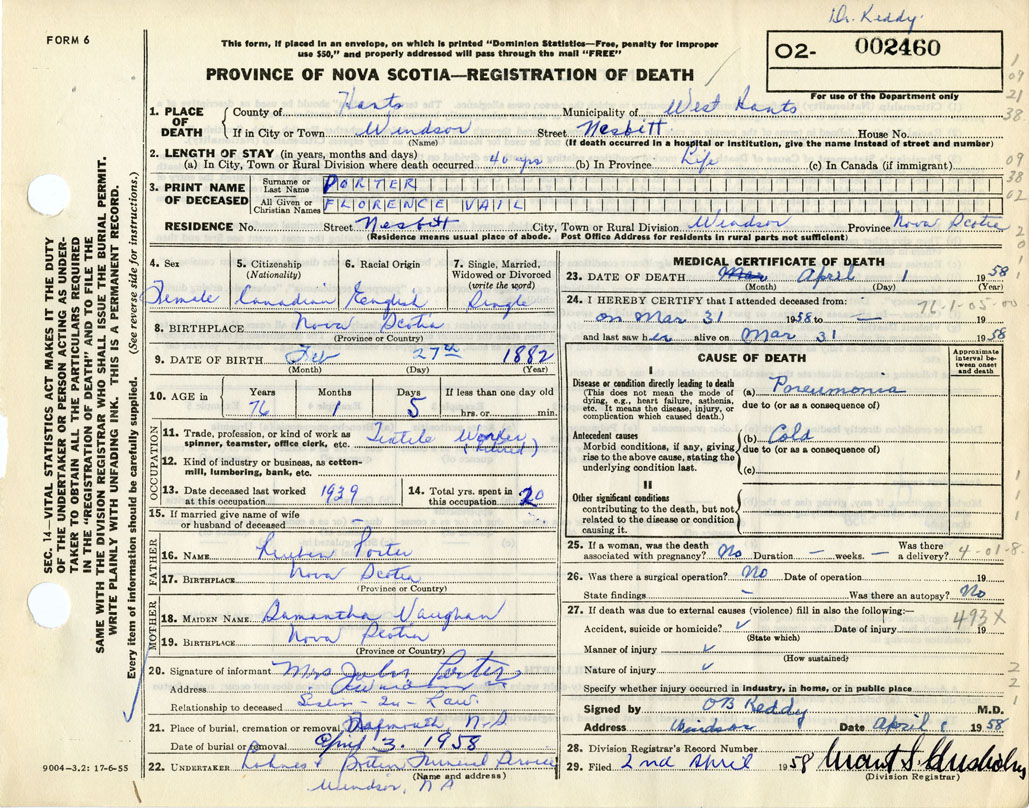 Dr. Keddy.
FORM 6
This form, if placed in an envelope, on which is printed "Dominion Statistics—Free, penalty for improper
use $50," and properly addressed will pass through the mail "FREE"
PROVINCE OF NOVA SCOTIA—REGISTRATION OF DEATH
02- 002460
For use of the Department only
1. PLACE OF DEATH
County of Hants Municipality of West Hants
If in City or Town Windsor Street Nesbitt House No.
(Name) (If death occurred in a hospital or institution, give the name instead of street and number)
2. LENGTH OF STAY (in years, months and days)
(a) In City, Town or Rural Division where death occurred 40 yrs (b) In Province Life (c) In Canada (if immigrant)
3. PRINT NAME OF DECEASED
Surname or Last Name PORTER
All Given or Christian Names FLORENCE VAIL
RESIDENCE No. Street Nesbitt City, Town or Rural Division Windsor Province Nova Scotia
(Residence means usual place of abode. Post Office Address for residents in rural parts not sufficient)
4. Sex 5. Citizenship (Nationality) 6. Racial Origin 7. Single, Married, Widowed or Divorced (write the word)
Female Canadian English Single
8. BIRTHPLACE Nova Scotia
(Province or Country)
9. DATE OF BIRTH Feb 27th 1882
(Month) (Day) (Year)
10. AGE in Years Months Days If less than one day old
76 1 5 hrs. or min.
OCCUPATION
11. Trade, profession, or kind of work as spinner, teamster, office clerk, etc. Textile Worker (Retired)
12. Kind of industry or business, as cotton-mill, lumbering, bank, etc.
13. Date deceased last worked at this occupation 1939 14. Total yrs. spent in this occupation 20
15. If married give name of wife or husband of deceased –
FATHER
16. NAME Porter
17. BIRTHPLACE Nova Scotia
(Province or Country)
MOTHER
18. MAIDEN NAME Samantha Vaughan
19. BIRTHPLACE Nova Scotia
(Province or Country)
20. Signature of informant Mrs John Porter
Address
Relationship to deceased Sister-in-Law
21. Place of burial, cremation or removal Falmouth N.S
Date of burial or removal April 3. 1958
22. UNDERTAKER Porter Funeral Service
(Name and address)
Windsor, NS
MEDICAL CERTIFICATE OF DEATH
23. DATE OF DEATH Mar April 1 1958
(Month) (Day) (Year)
24. I HEREBY CERTIFY that I attended deceased from: 76-1-05-00
on Mar 31 1958 to — 19
and last saw her alive on Mar 31 1958
CAUSE OF DEATH
Approximate interval between onset and death
I
Disease or condition directly leading to death
(This does not mean the mode of dying, e.g., heart failure, asthenia, etc. It means the disease, injury, or complication which caused death.)
(a) Pneumonia
due to (or as a consequence of)
Antecedent causes
Morbid conditions, if any, giving rise to the above cause, stating the underlying condition last.
(b) Cold
due to (or as a consequence of)
(c)
II
Other significant conditions
contributing to the death, but not related to the disease or condition causing it.
25. If a woman, was the death associated with pregnancy? No Duration — weeks. — Was there a delivery? 4-01-8-
26. Was there a surgical operation? No Date of operation 19
State findings – Was there an autopsy? No
27. If death was due to external causes (violence) fill in also the following:—
493X
Accident, suicide or homicide? Date of injury 19
(State which)
Manner of injury
(How sustained)
Nature of injury
Specify whether injury occurred in industry, in home, or in public place
Signed by OB Keddy M.D.
Address Windsor Date April 1958
28. Division Registrar's Record Number
29. Filed 2nd April 1958
(Division Registrar)
9004—3.2: 17-6-55
SEC. 14—VITAL STATISTICS ACT MAKES IT THE DUTY
OF THE UNDERTAKER OR PERSON ACTING AS UNDER-
TAKER TO OBTAIN ALL THE PARTICULARS REQUIRED
IN THE "REGISTRATION OF DEATH" AND TO FILE THE
SAME WITH THE DIVISION REGISTRAR WHO SHALL ISSUE THE BURIAL PERMIT.
WRITE PLAINLY WITH UNFADING INK. THIS IS A PERMANENT RECORD.
Every item of information should be carefully supplied. (See reverse side for instructions.)
1
09
21
38
09
38
02